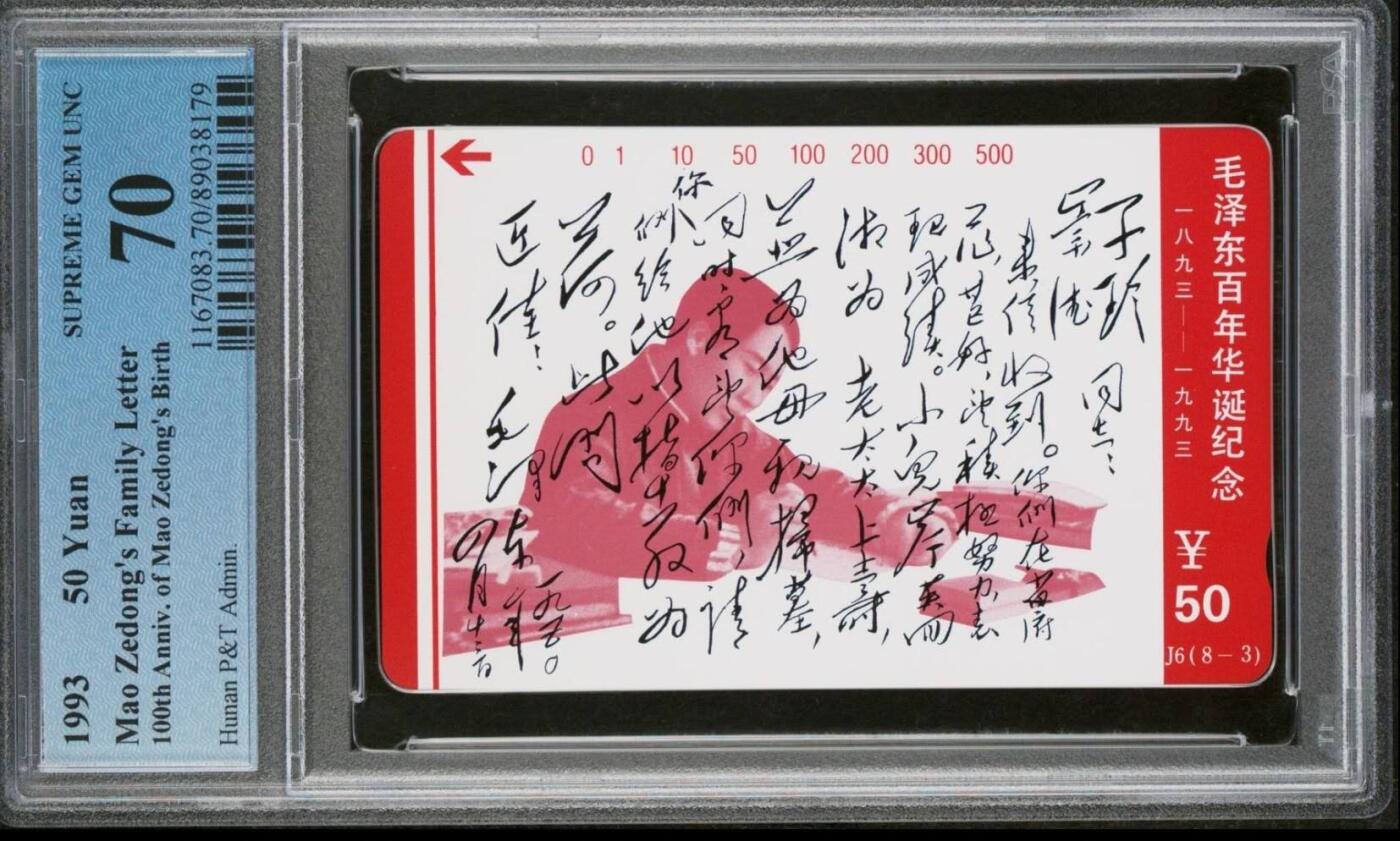 1993 50 Yuan SUPREME GEM UNC
Mao Zedong's Family Letter 70
100th Anniv. of Mao Zedong's Birth
1167083.70/89038179
Hunan P&T Admin.
0 1 10 50 100 200 300 500
毛泽东百年华诞纪念
一八九三——一九九三
¥
50
J6(8-3)
子珍
崇德 同志:
来信收到。你们在省府
工作甚好,望积极努力,表
现成绩。小儿岸英回
湘为 老太太上寿,
并为他母亲掃墓,
同时看望你们,请
你们给他以指教为
荷。此问
近佳!
毛泽东
一九五〇年
四月十三日